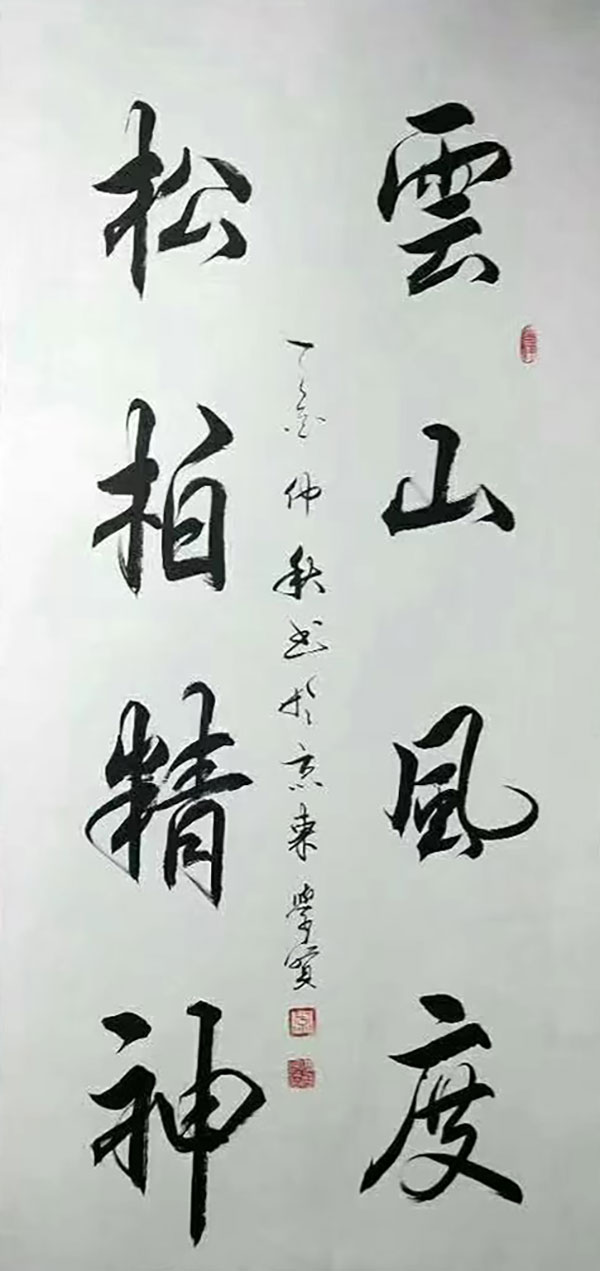 雲山風度
松柏精神
丁 仲秋书於京東 學